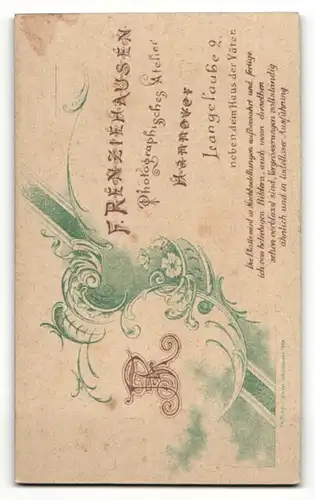 F. RENZIEHAUSEN
Photographisches Atelier
Hannover
Langelaube 9
neben dem Haus der Väter.
Die Platte wird zu Nachbestellungen aufbewahrt und fertige
ich von beliebigen Bildern, auch wenn dieselben
schon verblasst sind, Vergrösserungen vollständig
ähnlich und in tadelloser Ausführung
FR